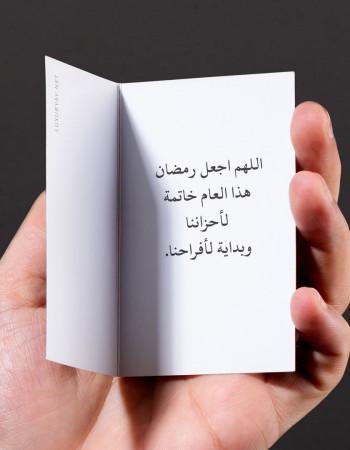 اللهم اجعل رمضان
هذا العام خاتمة
لأحزاننا
وبداية لأفراحنا.
LUXURYAY.NET